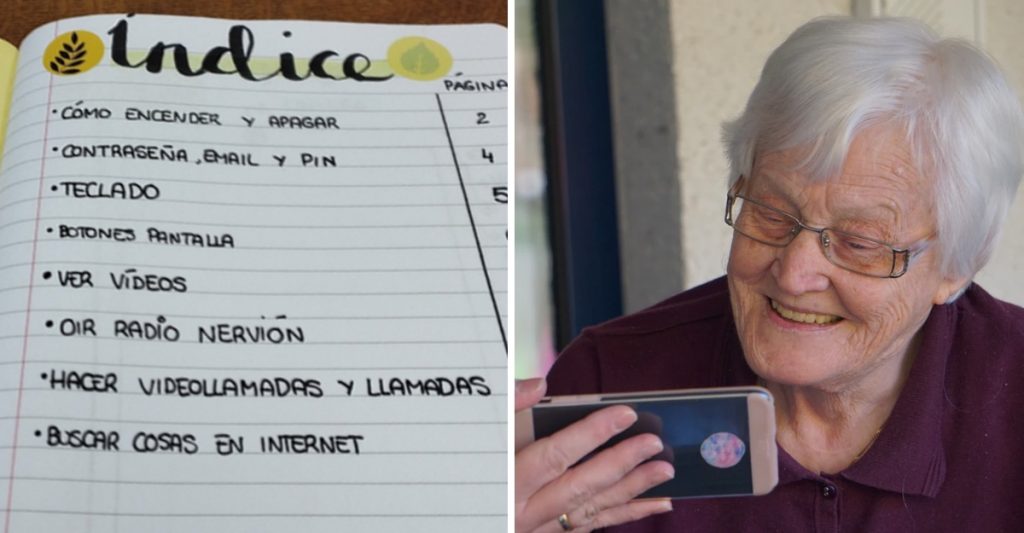 Índice
PÁGINA
• CÓMO ENCENDER Y APAGAR 2
• CONTRASEÑA, EMAIL Y PIN 4
• TECLADO 5
• BOTONES PANTALLA
• VER VÍDEOS
• OIR RADIO NERVIÓN
• HACER VIDEOLLAMADAS Y LLAMADAS
• BUSCAR COSAS EN INTERNET